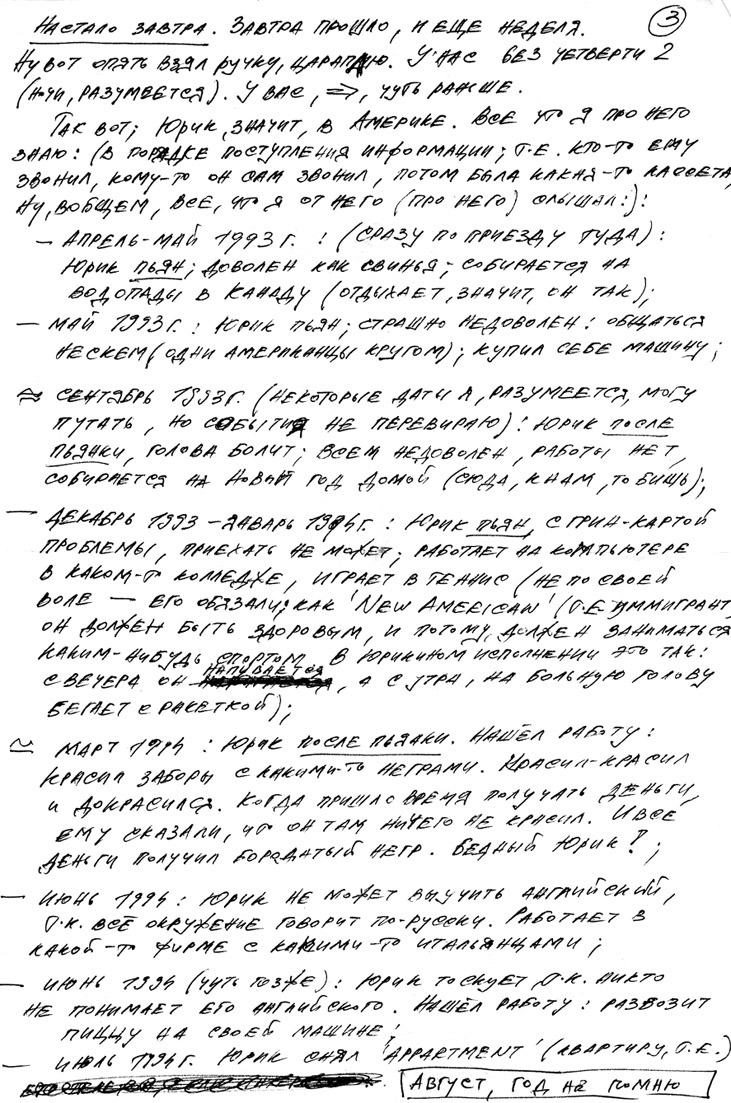 ③
Настало завтра. Завтра прошло, и еще неделя.
Ну вот опять взял ручку, царапаю. У нас без четверти 2
(ночи, разумеется). У вас, =>, чуть раньше.
Так вот; Юрик, значит, в Америке. Все что я про него
знаю: (в порядке поступления информации; т.е. кто-то ему
звонил, кому-то он сам звонил, потом была какая-то кассета,
ну, вобщем, все, что я от него (про него) слышал:):
— апрель-май 1993 г. : (сразу по приезду туда):
Юрик пьян; доволен как свинья; собирается на
водопады в Канаду (отдыхает, значит, он так);
— май 1993 г. : Юрик пьян; страшно недоволен: общаться
нескем (одни американцы кругом); купил себе машину;
≈ сентябрь 1993г. (некоторые даты я, разумеется, могу
путать, но события не перевираю): Юрик после
пьянки, голова болит; всем недоволен, работы нет,
собирается на Новый год домой (сюда, к нам, то бишь);
— декабрь 1993 – январь 1994г. : Юрик пьян, с грин-картой
проблемы, приехать не может; работает на компьютере
в каком-то колледже, играет в теннис (не по своей
воле — его обязали; как 'New Ameeican' (т.е иммигрант)
он должен быть здоровым, и потому, должен заниматься
каким-нибудь спортом. В Юрикином исполнении это так:
с вечера он напивается, а с утра, на больную голову
бегает с ракеткой);
≃ март 1994 : Юрик после пьянки. Нашёл работу:
красил заборы с какими-то неграми. Красил-красил
и докрасился. Когда пришло время получать деньги,
ему сказали, что он там ничего не красил. И все
деньги получил бородатый негр. Бедный Юрик!;
— июнь 1994 : Юрик не может выучить английский,
т.к. всё окружение говорит по-русски. Работает в
какой-то фирме с какими-то итальянцами;
— июнь 1994 (чуть позже): Юрик тоскует т.к. никто
не понимает его английского. Нашёл работу: развозит
пиццу на своей машине;
— июль 1994г. Юрик снял 'appartment' (квартиру, т.е.)
Август, год не помню